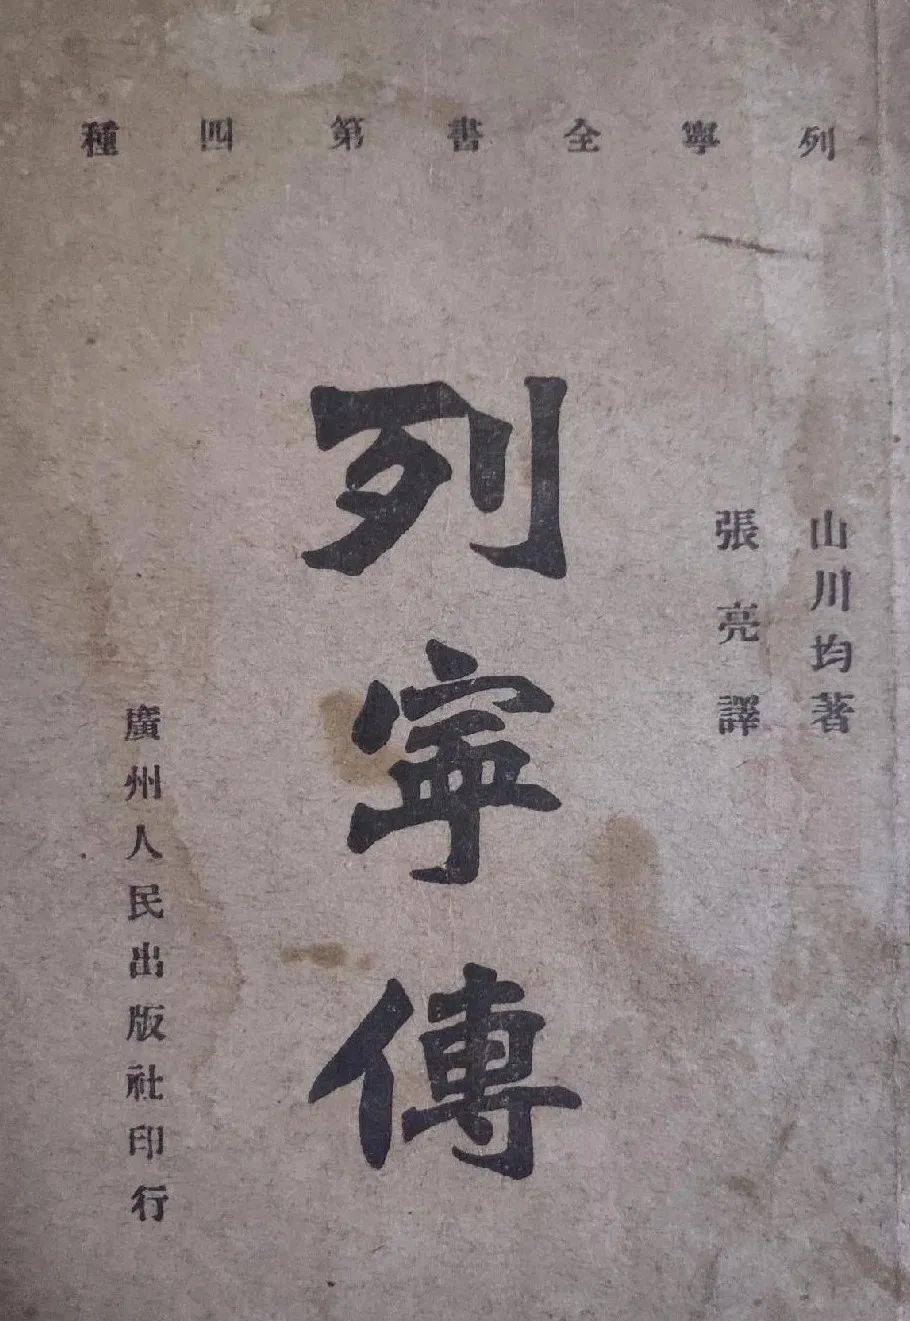 列寧全書第四種
山川均著
張亮譯
列寧傳
廣州人民出版社印行